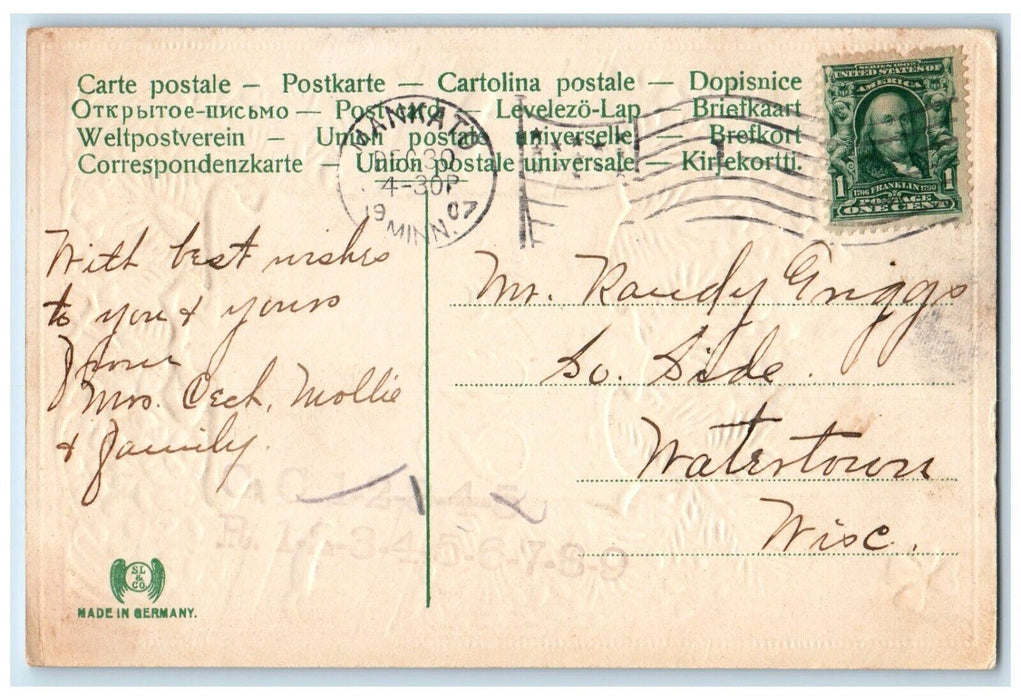 Carte postale — Postkarte — Cartolina postale — Dopisnice
Открытое-письмо — Post card — Levelező-Lap — Briefkaart
Weltpostverein — Union postale universelle — Brefkort
Correspondenzkarte — Union postale universale — Kirjekortti.
MANKATO
DEC 30
4-30P
1907
MINN.
SERIES 1902
UNITED STATES OF
AMERICA
1 1706 FRANKLIN 1790 1
POSTAGE
ONE CENT
With best wishes
to you & yours
from
Mrs. Cech, Mollie
& family.
Mr. Randy Griggs
So. Side.
Watertown
Wisc.
C. C. 1-2-4-5
R. 1-2-3-4-5-6-7-8-9
SL
&
CO
MADE IN GERMANY.